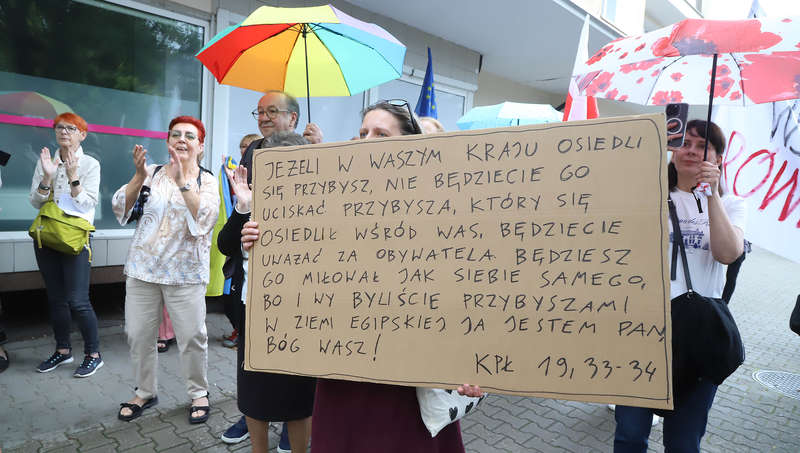 JEŻELI W WASZYM KRAJU OSIEDLI
SIĘ PRZYBYSZ, NIE BĘDZIECIE GO
UCISKAĆ PRZYBYSZA, KTÓRY SIĘ
OSIEDLIŁ WŚRÓD WAS, BĘDZIECIE
UWAŻAĆ ZA OBYWATELA. BĘDZIESZ
GO MIŁOWAŁ JAK SIEBIE SAMEGO,
BO I WY BYLIŚCIE PRZYBYSZAMI
W ZIEMI EGIPSKIEJ JA JESTEM PAN,
BÓG WASZ!
KPŁ 19, 33-34